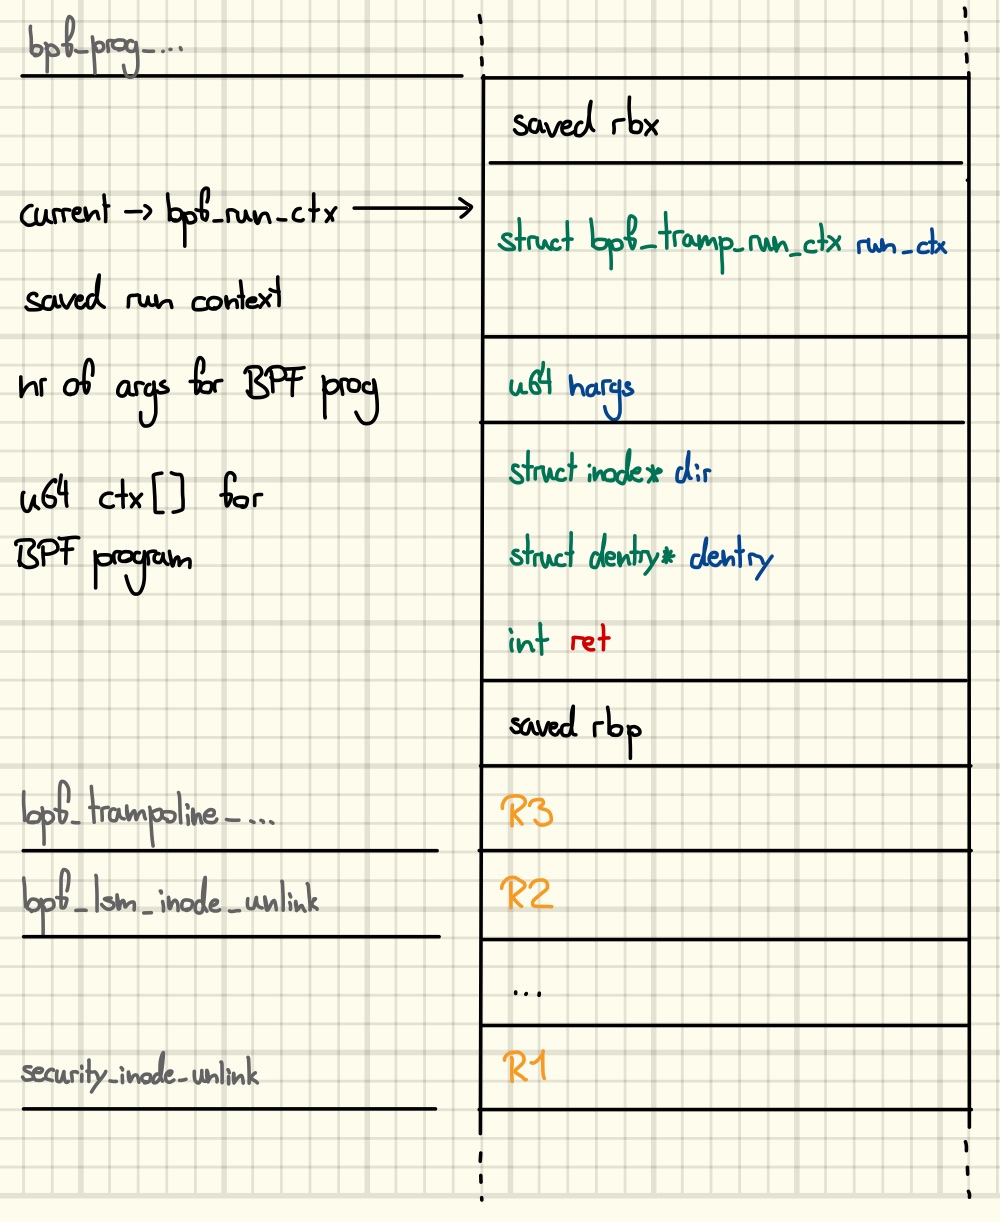 bpf_prog_...
saved rbx
current → bpf_run_ctx
struct bpf_tramp_run_ctx run_ctx
saved run context
nr of args for BPF prog
u64 nargs
u64 ctx[] for
BPF program
struct inode* dir
struct dentry* dentry
int ret
saved rbp
bpf_trampoline_...
R3
bpf_lsm_inode_unlink
R2
...
security_inode_unlink
R1